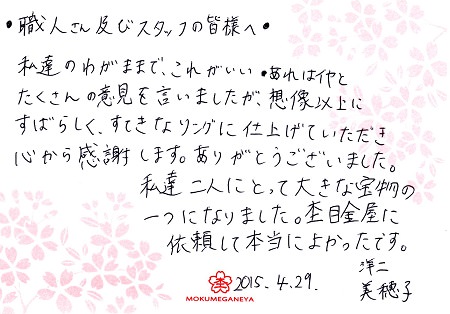 ・職人さん及びスタッフの皆様へ・
私達のわがままで、これがいい・あれはイヤと
たくさんの意見を言いましたが、想像以上に
すばらしく、すてきなリングに仕上げていただき
心から感謝します。ありがとうございました。
私達二人にとって大きな宝物の
一つになりました。杢目金屋に
依頼して本当によかったです。
洋二
美穂子
2015.4.29.
MOKUMEGANEYA